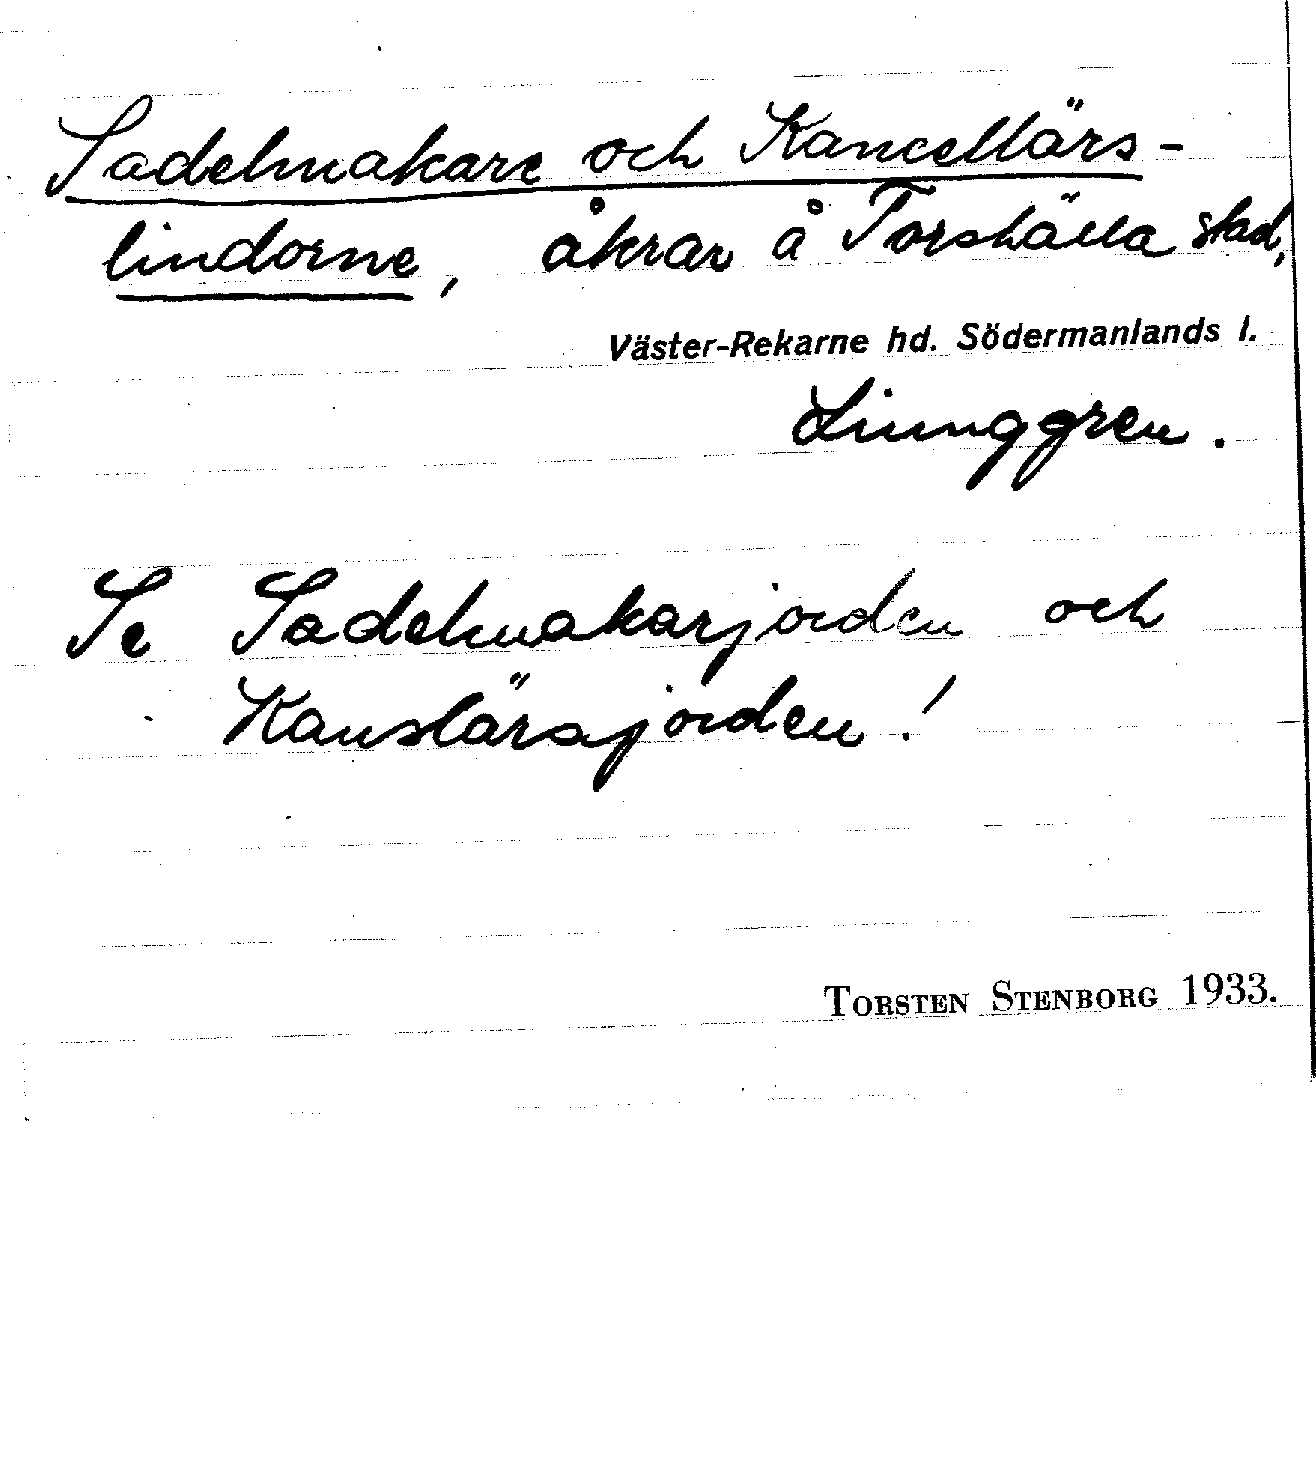 Sadelmakare och Kancellärs-
lindorne, åkrar å Torshälla stad,
Väster-Rekarne hd. Södermanlands l.
Ljunggren.
Se Sadelmakarjorden och
Kanslärsjorden!
TORSTEN STENBORG 1933.